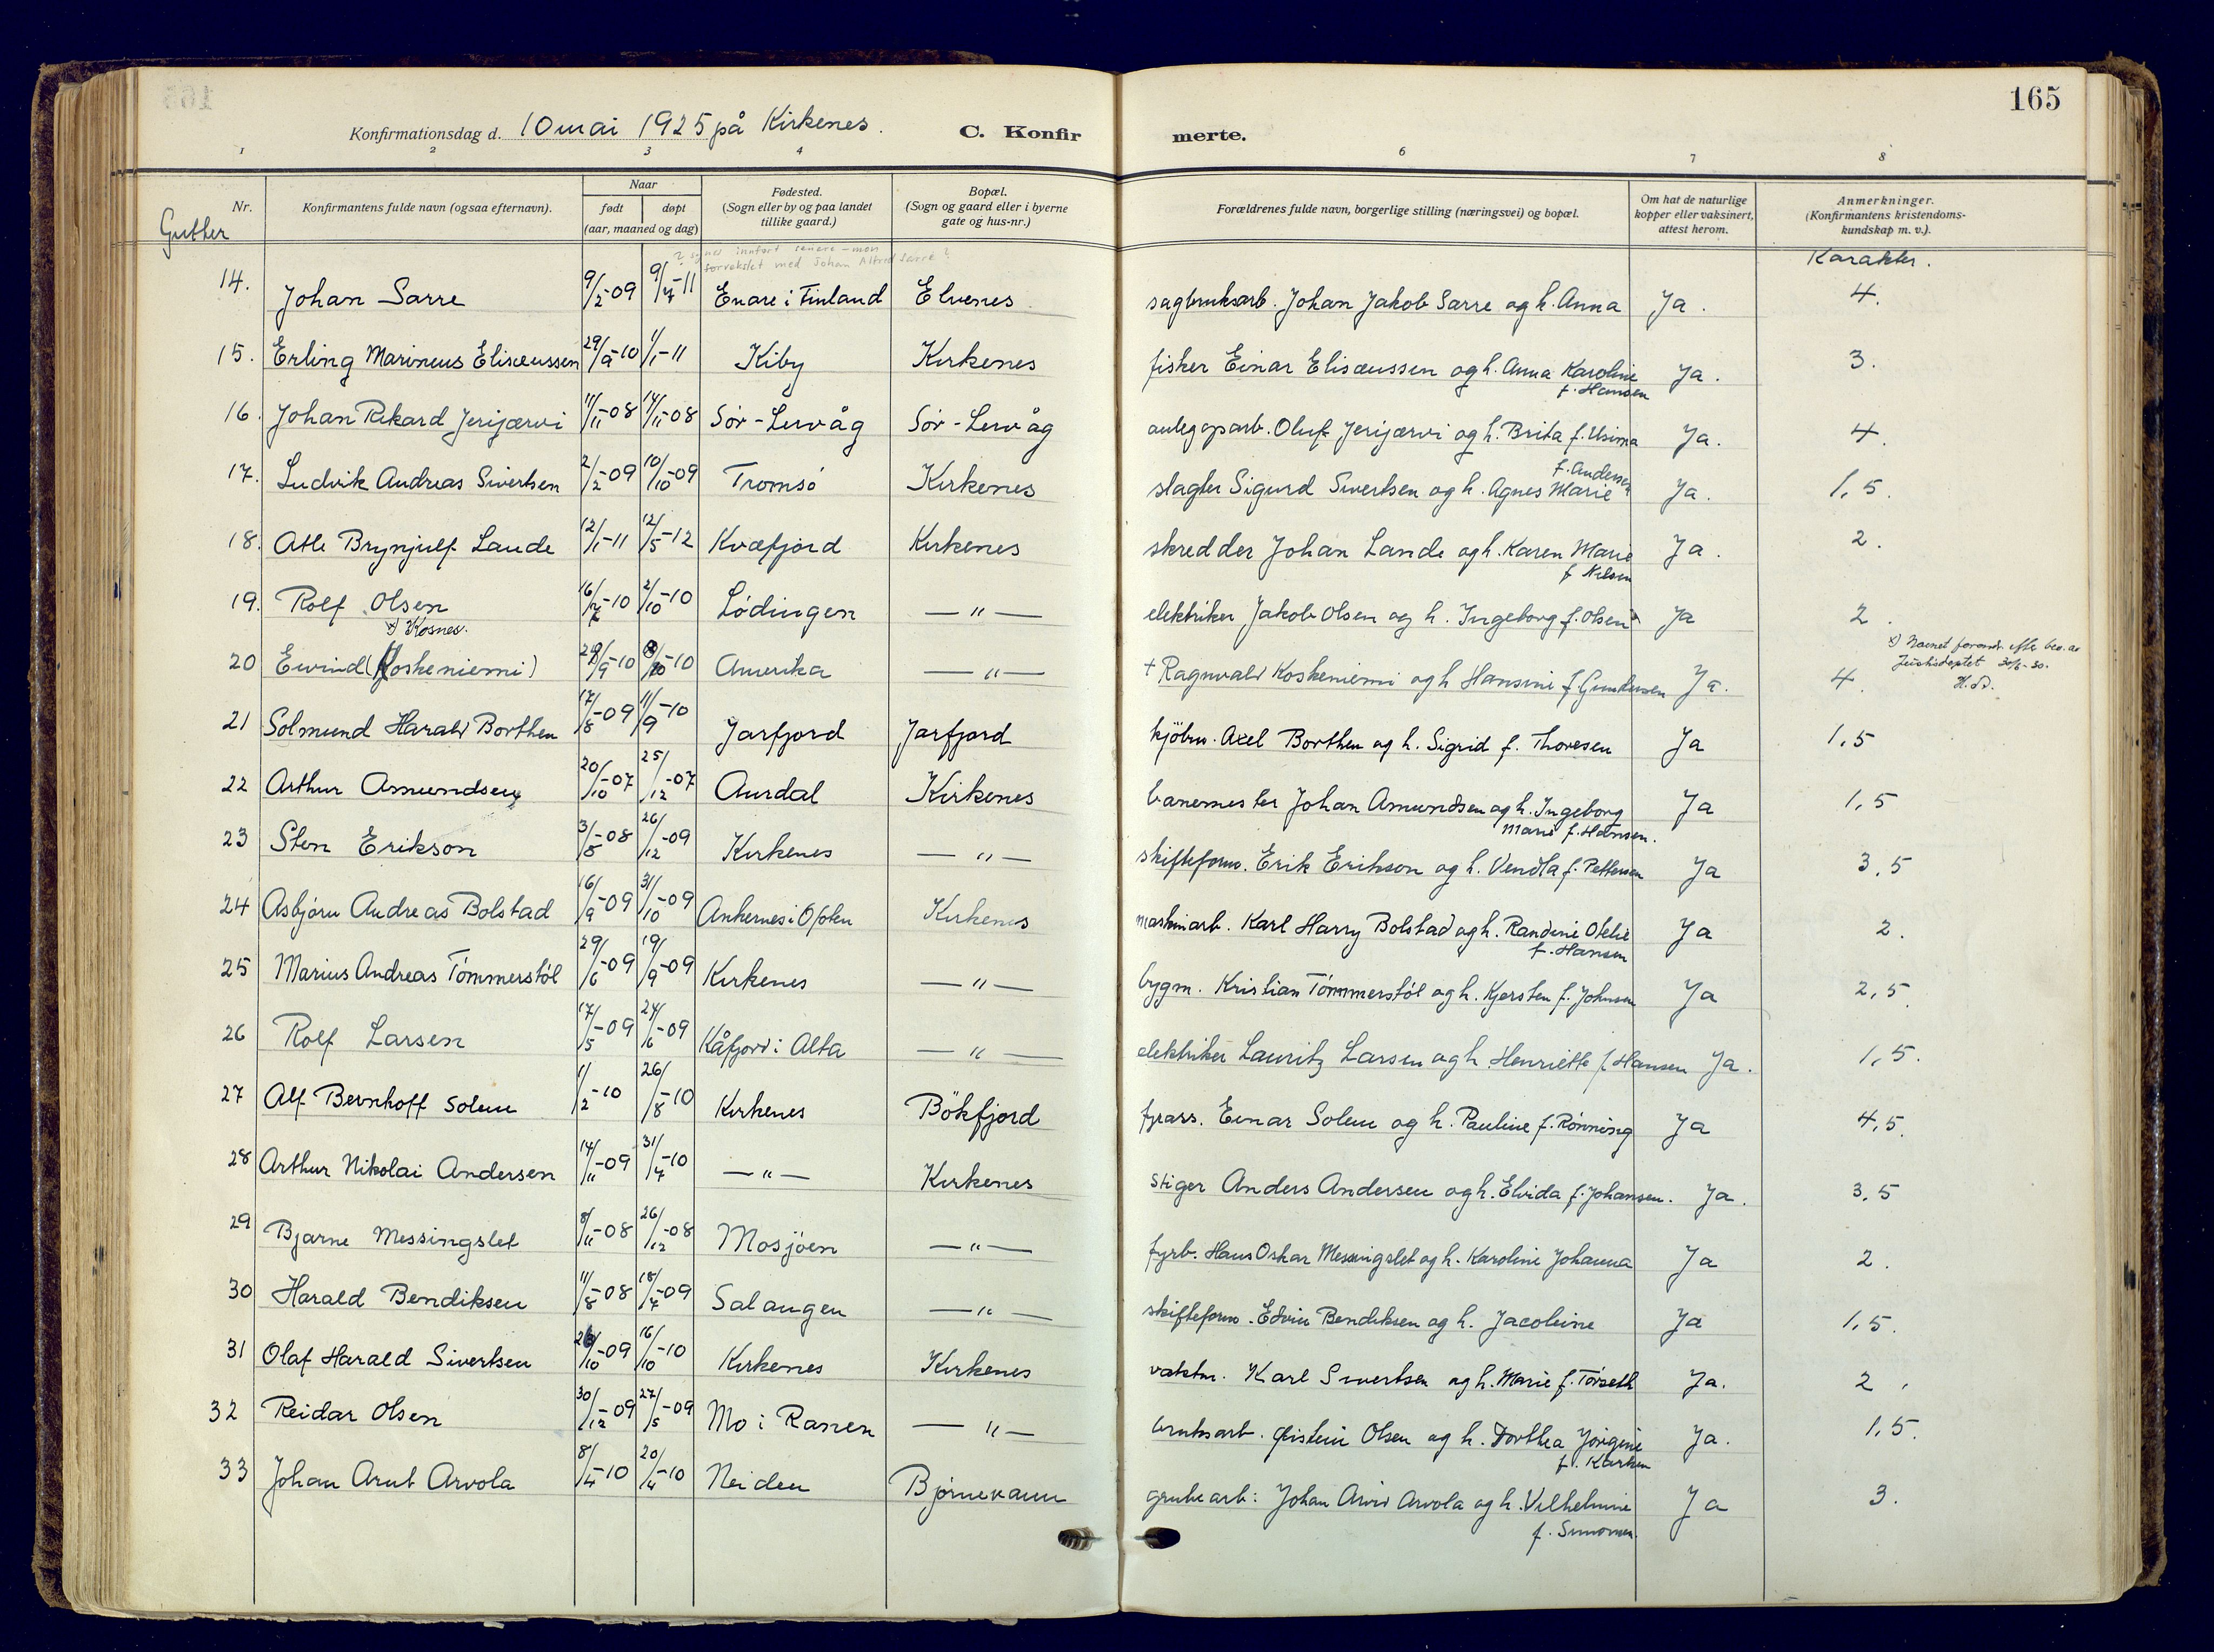 165
Konfirmationsdag d. 10 mai 1925 på Kirkenes. C. Konfirmerte.
1 2 3 4 6 7 8
Nr. Konfirmantens fulde navn (ogsaa efternavn). Naar født døpt (aar, maaned og dag) Fødested. (Sogn eller by og paa landet tillike gaard.) Bopæl. (Sogn og gaard eller i byerne gate og hus-nr.) Forældrenes fulde navn, borgerlige stilling (næringsvei) og bopæl. Om hat de naturlige kopper eller vaksinert, attest herom. Anmerkninger. (Konfirmantens kristendoms-kundskap m. v.).
Gutter
Karakter.
? synes innført senere – mon forvekslet med Johan Alfred Sarre?
14. Johan Sarre 9/2-09 9/7-11 Enare i Finland Elvenes. sagbruksarb. Johan Jakob Sarre og h. Anna Ja. 4.
15. Erling Marineus Elisæussen 29/9-10 1/1-11 Kiby Kirkenes fisker Einar Elisæussen og h. Anna Karoline f. Hansen Ja. 3.
16. Johan Rikard Jerijærvi 11/11-08 14/11-08 Sör-Lervåg Sör-Lervåg anlegsarb. Oluf Jerijærvi og h. Brita f. Usima Ja. 4.
17. Ludvik Andreas Sivertsen 2/2-09 10/10-09 Tromsö Kirkenes slagter Sigurd Sivertsen og h. Agnes Marie f. Andersen Ja. 1,5.
18. Atle Brynjulf Lande 12/1-11 12/5-12 Kvæfjord Kirkenes skredder Johan Lande og h. Karen Marie f. Nilsen Ja. 2.
19. Rolf Olsen 16/7-10 2/10-10 Lödingen — " — elektriker Jakob Olsen og h. Ingeborg f. Olsen Ja 2.
x) Kosnes.
20 Eivind (Koskeniemi) 29/9-10 8/10-10 Amerika — " — + Ragnvald Koskeniemi og h Hansine f Gundersen Ja. 4. x) Navnet forandr. efter bev. av Justisdeptet 30/6-30. H.D.
21 Solmund Harald Borthen 17/8-09 11/9-10 Jarfjord Jarfjord kjöbm. Axel Borthen og h. Sigrid f. Thoresen Ja 1,5
22 Arthur Amundsen 20/10-07 25/12-07 Aurdal Kirkenes banemester Johan Amundsen og h. Ingeborg Marie f. Hansen. Ja 1,5
23 Sten Erikson 3/8-08 26/12-09 Kirkenes — " — skifteform. Erik Erikson og h. Vendla f. Pettersen Ja 3,5
24 Asbjörn Andreas Bolstad 16/9-09 31/10-09 Ankenes i Ofoten Kirkenes maskinarb. Karl Harry Bolstad og h. Randine Otelie f. Hansen Ja 2.
25 Marius Andreas Tömmerstöl 29/6-09 19/9-09 Kirkenes — " — bygm. Kristian Tömmerstöl og h. Kjersten f. Johnsen Ja 2,5.
26 Rolf Larsen 17/5-09 24/6-09 Kåfjord i Alta — " — elektriker Lauritz Larsen og h. Henriette f. Hansen Ja. 1,5.
27 Alf Bernhoff Solem 1/2-10 26/8-10 Kirkenes Bökfjord fyrass. Einar Solem og h. Pauline f. Rönning Ja 4,5.
28 Arthur Nikolai Andersen 14/11-09 31/7-10 — " — Kirkenes stiger Anders Andersen og h. Elvida f. Johansen. Ja. 3,5
29 Bjarne Messingslet 8/11-08 26/12-08 Mosjöen — " — fyrb. Hans Oskar Messingslet og h. Karoline Johanna Ja 2.
30 Harald Bendiksen 11/8-08 18/7-09 Salangen — " — skifteform. Edvin Bendiksen og h. Jacobine Ja 1,5.
31 Olaf Harald Sivertsen /10-09 16/10-10 Kirkenes Kirkenes vaktm. Karl Sivertsen og h. Marie f. Törseth Ja. 2.
32 Reidar Olsen 30/12-09 27/5-09 Mo i Ranen — " — bruksarb. Øistein Olsen og h. Dorthea Jörgine f. Karlsen Ja. 1,5.
33 Johan Arnt Arvola 8/4-10 20/4-10 Neiden Björnevann grubearb: Johan Arvid Arvola og h. Vilhelmine f. Simonsen. Ja 3.